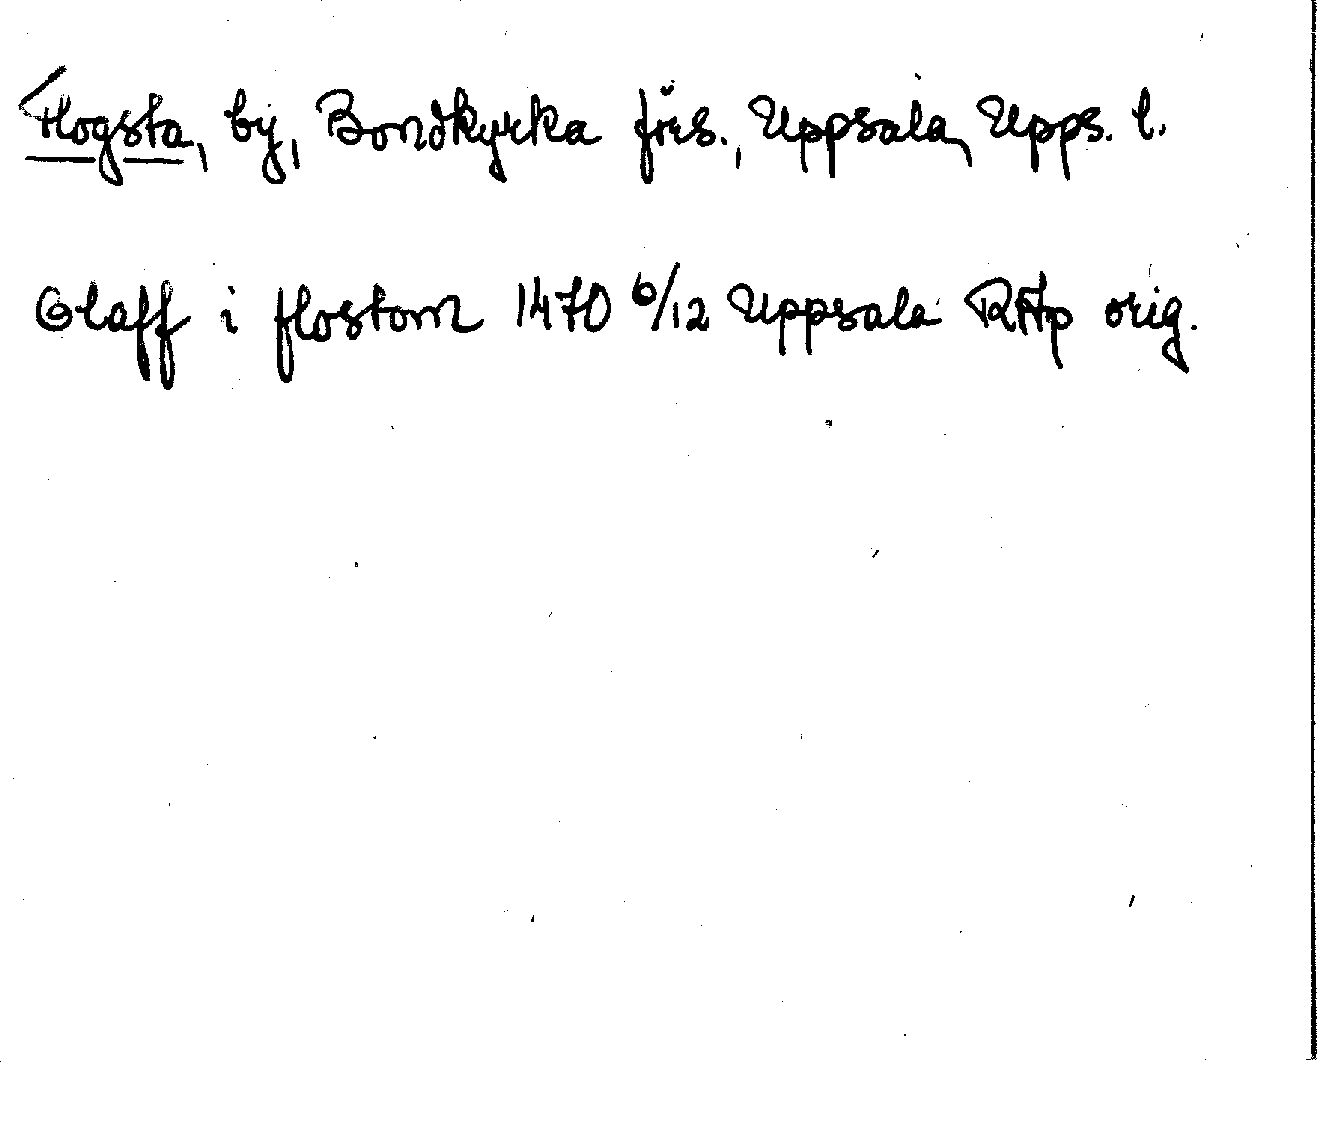 Flogsta, by, Bondkyrka förs., Uppsala, Upps. l.
Olaff i flostom 1470 6/12 Uppsala RAp orig.